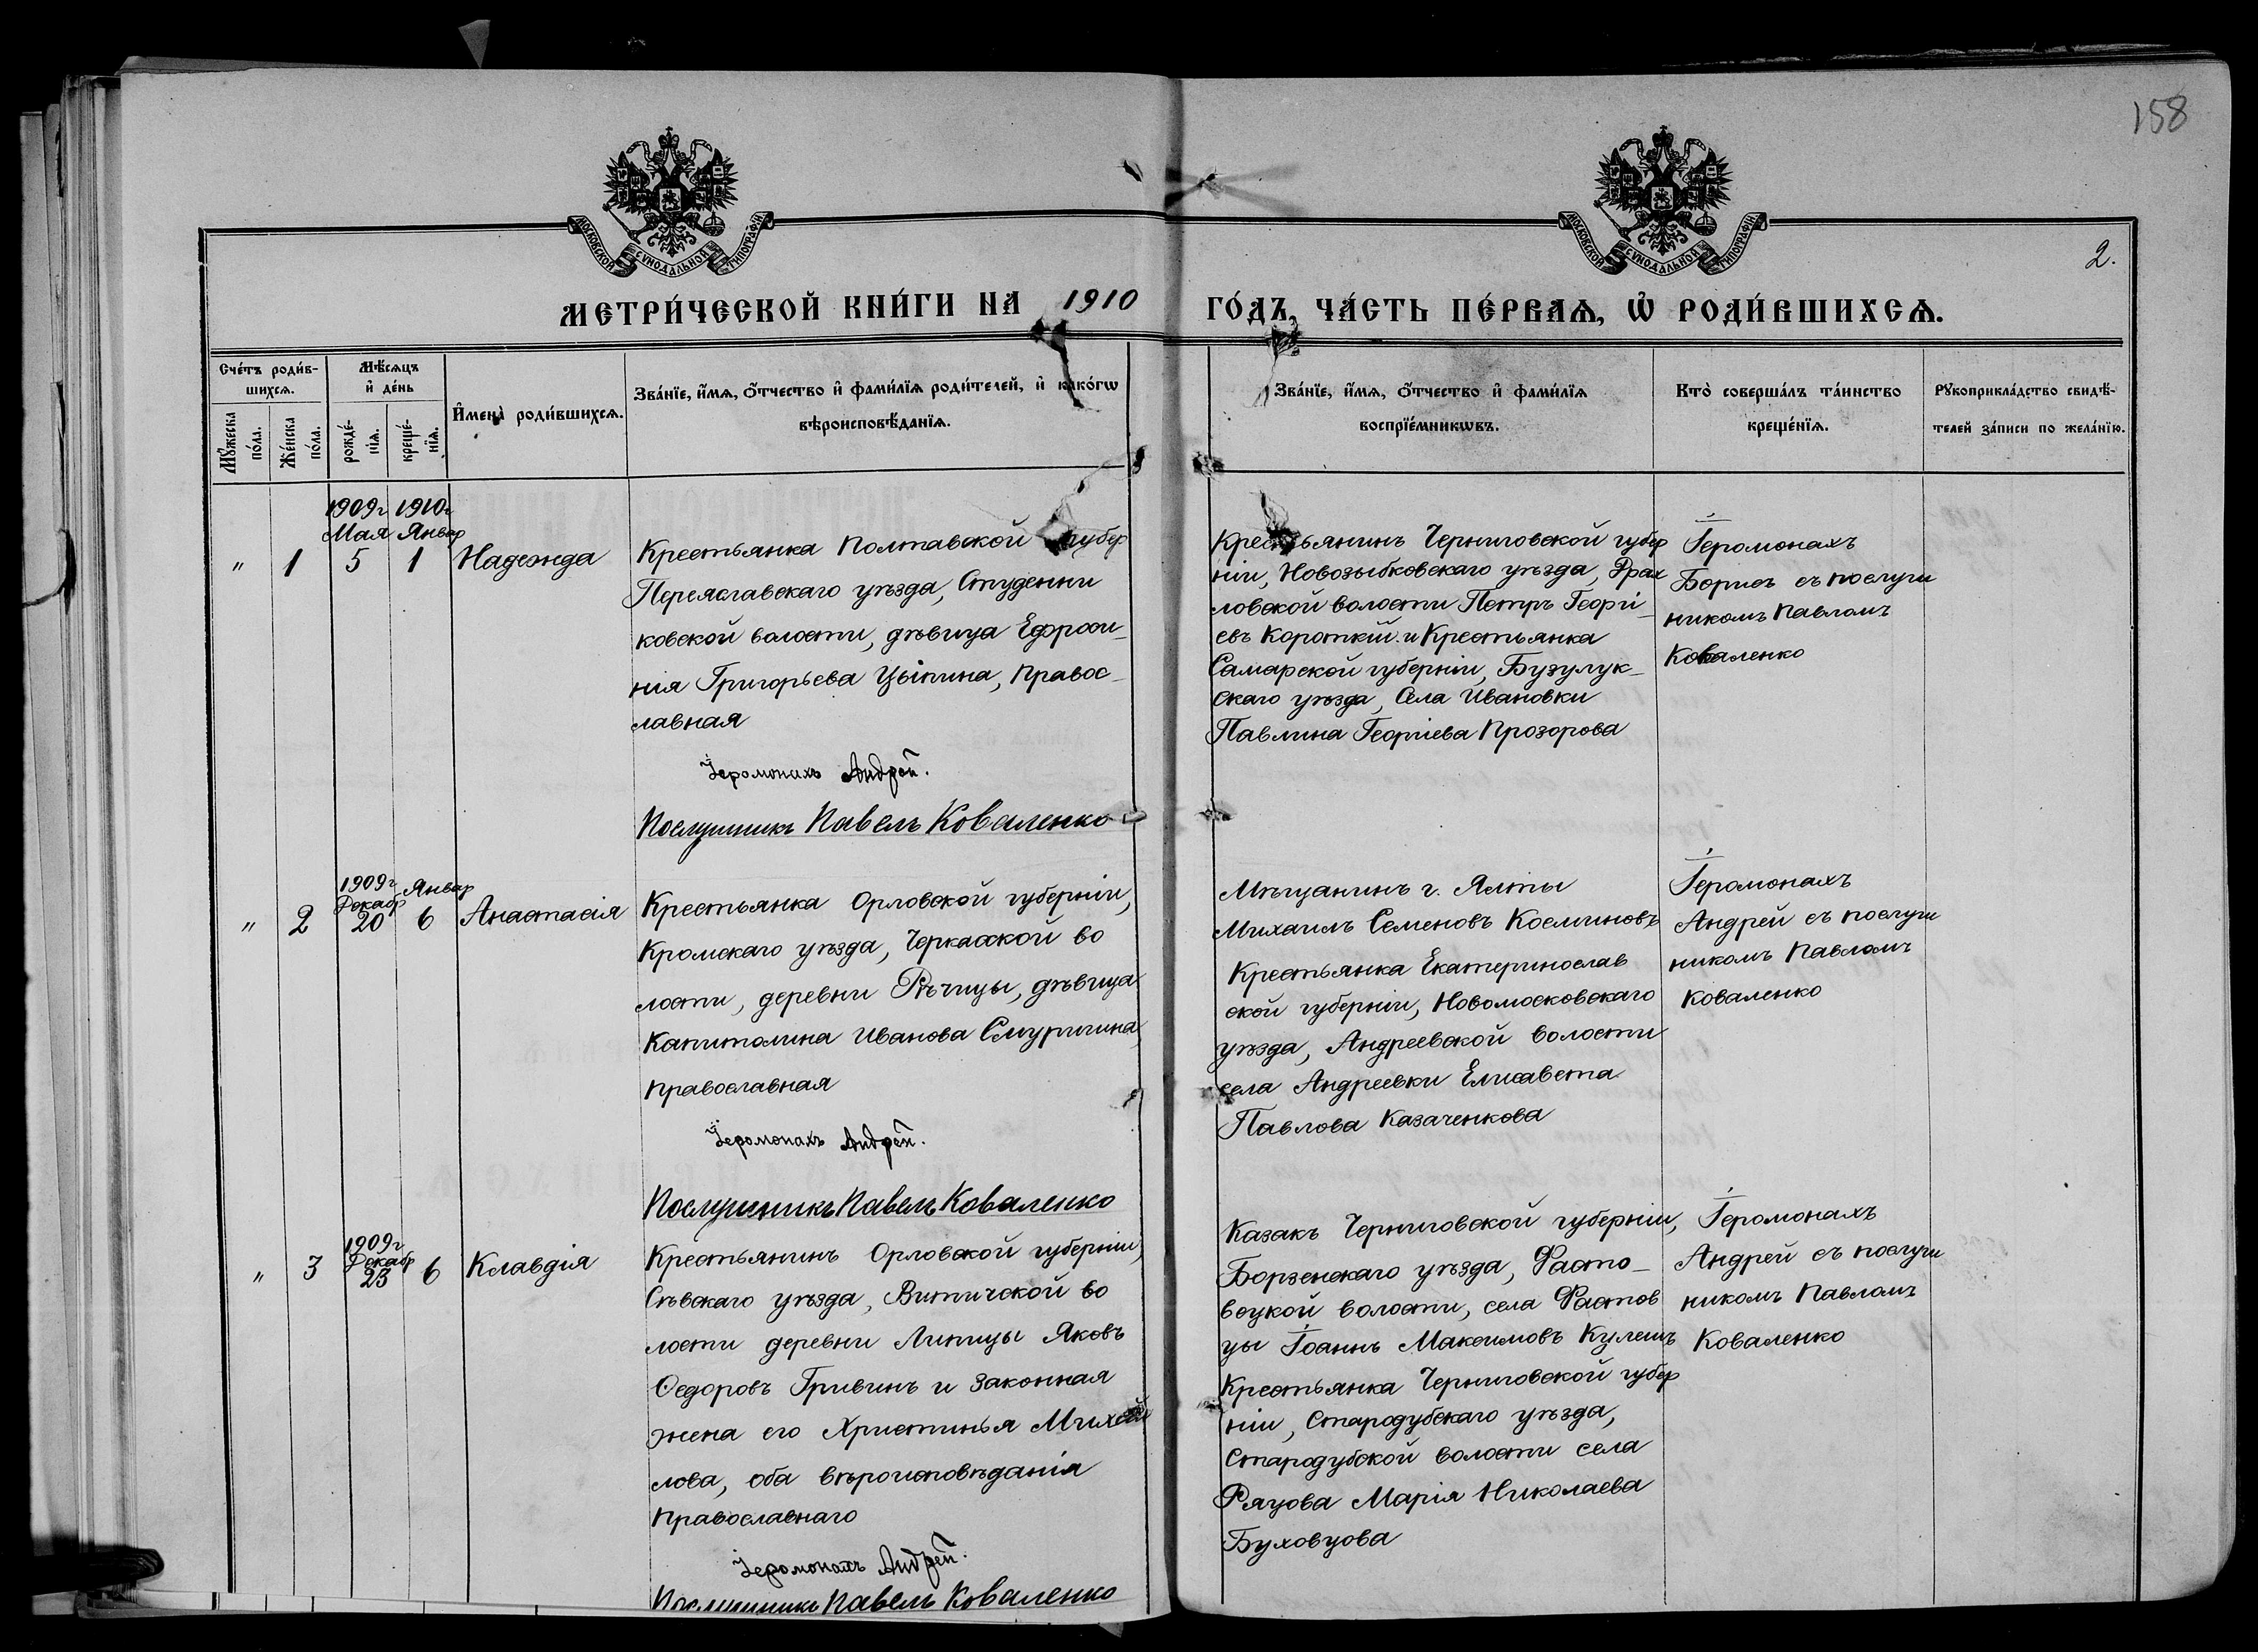 158
МОСКОВСКОЙ СѴНОДАЛЬНОЙ ТИПОГРАФІИ
МОСКОВСКОЙ СѴНОДАЛЬНОЙ ТИПОГРАФІИ
2.
МЕТРИ́ЧЕСКОЙ КНИ́ГИ НА 1910 ГО́ДЪ, ЧА́СТЬ ПЕ́РВАѦ, Ѡ҆ РОДИ́ВШИХСѦ.
Сче́тъ роди́в-
шихсѧ.
Мꙋ́жеска
по́ла.
Же́нска
по́ла.
Мѣ́сѧцъ
и҆ де́нь
рожде́-
нїѧ.
креще́-
нїѧ.
И҆мена̀ роди́вшихсѧ.
Зва́нїе, и҆́мѧ, ѻ҆́тчество и҆ фами́лїѧ роди́телей, и҆ како́гѡ
вѣроисповѣ́данїѧ.
Зва́нїе, и҆́мѧ, ѻ҆́тчество и҆ фами́лїѧ
воспрїе́мникѡвъ.
Кто̀ соверша́лъ та́инство
креще́нїѧ.
Рꙋкоприкла́дство свидѣ́-
телей за́писи по жела́нїю.
1909г 1910г
Мая Январ
" 1 5 1 Надежда
Крестьянка Полтавской губер
Переяславскаго уѣзда, Студенни
ковской волости, дѣвица Ефроси-
нія Григорьева Цыпина, Правос-
лавная
Іеромонахъ Андрей.
Послушникъ Павелъ Коваленко
Крестьянинъ Черниговской губер
ніи, Новозыбковскаго уѣзда,
ловской волости Петръ Георгі-
евъ Короткій и Крестьянка
Самарской губерніи, Бузулук-
скаго уѣзда, Села Ивановки
Павлина Георгіева Прозорова
Іеромонахъ
Борисъ съ послуш
никомъ Павломъ
Коваленко
1909г Январ
Декабр
" 2 20 6 Анастасія
Крестьянка Орловской губерніи,
Кромскаго уѣзда, Черкасской во
лости, деревни Рѣчицы, дѣвица
Капитолина Иванова
православная
Іеромонахъ Андрей.
Послушникъ Павелъ Коваленко
Мѣщанинъ г. Ялты
Михаилъ Семеновъ Косминовъ
Крестьянка Екатеринослав
ской губерніи, Новомосковскаго
уѣзда, Андреевской волости
села Андреевки Елисавета
Павлова Казаченкова
Іеромонахъ
Андрей съ послуш
никомъ Павломъ
Коваленко
1909г
Декабр
" 3 23 6 Клавдія
Крестьянинъ Орловской губерніи,
Сѣвскаго уѣзда, Витичской во
лости деревни Липицы Яковъ
Ѳедоровъ Гривинъ и законная
жена его Христинья Михай
лова, оба вѣроисповѣданія
православнаго
Іеромонахъ Андрей.
Послушникъ Павелъ Коваленко
Казакъ Черниговской губерніи,
Борзенскаго уѣзда, Фасто-
вецкой волости, села Фастов
цы Іоаннъ Максимовъ Кулешъ
Крестьянка Черниговской губер
ніи, Стародубскаго уѣзда,
Стародубской волости села
Рячова Марія Николаева
Буховцова
Іеромонахъ
Андрей съ послуш
никомъ Павломъ
Коваленко